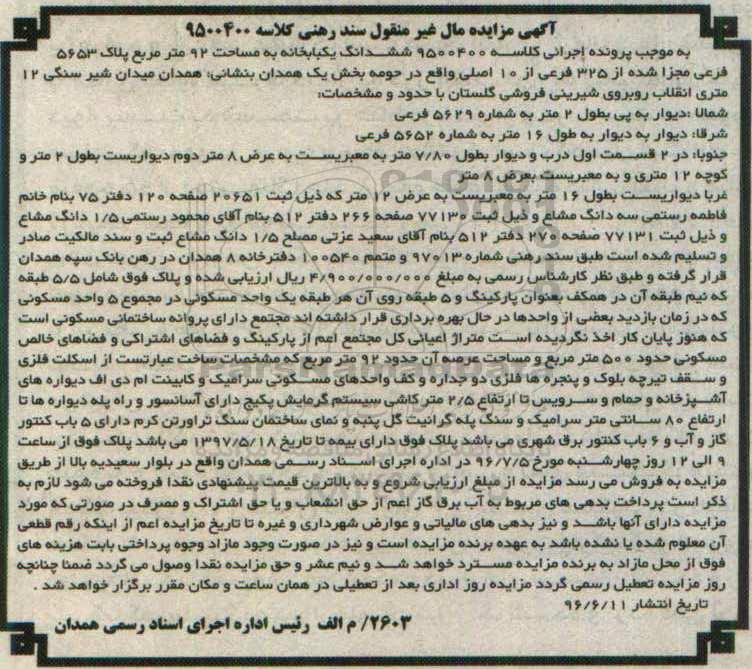 آگهی مزایده مال غیر منقول سند رهنی کلاسه ۹۵۰۰۴۰۰
به موجب پرونده اجرائی کلاسه ۹۵۰۰۴۰۰ ششدانگ یکبابخانه به مساحت ۹۲ متر مربع پلاک ۵۶۵۳
فرعی مجزا شده از ۳۲۵ فرعی از ۱۰ اصلی واقع در حومه بخش یک همدان بنشانی: همدان میدان شیر سنگی ۱۲
متری انقلاب روبروی شیرینی فروشی گلستان با حدود و مشخصات:
شمالا :دیوار به پی بطول ۲ متر به شماره ۵۶۲۹ فرعی
شرقا: دیوار به دیوار به طول ۱۶ متر به شماره ۵۶۵۲ فرعی
جنوبا: در ۲ قسمت اول درب و دیوار بطول ۷/۸۰ متر به معبریست به عرض ۸ متر دوم دیواریست بطول ۲ متر و
کوچه ۱۲ متری و به معبریست بعرض ۸ متر
غربا دیواریست بطول ۱۶ متر به معبریست به عرض ۱۲ متر که ذیل ثبت ۲۰۶۵۱ صفحه ۱۲۰ دفتر ۷۵ بنام خانم
فاطمه رستمی سه دانگ مشاع و ذیل ثبت ۷۷۱۳۰ صفحه ۲۶۶ دفتر ۵۱۲ بنام آقای محمود رستمی ۱/۵ دانگ مشاع
و ذیل ثبت ۷۷۱۳۱ صفحه ۲۷۰ دفتر ۵۱۲ بنام آقای سعید عزتی مصلح ۱/۵ دانگ مشاع ثبت و سند مالکیت صادر
و تسلیم شده است طبق سند رهنی شماره ۹۷۰۱۳ و متمم ۱۰۰۵۴۰ دفترخانه ۸ همدان در رهن بانک سپه همدان
قرار گرفته و طبق نظر کارشناس رسمی به مبلغ ۴/۹۰۰/۰۰۰/۰۰۰ ریال ارزیابی شده و پلاک فوق شامل ۵/۵ طبقه
که نیم طبقه آن در همکف بعنوان پارکینگ و ۵ طبقه روی آن هر طبقه یک واحد مسکونی در مجموع ۵ واحد مسکونی
که در زمان بازدید بعضی از واحدها در حال بهره برداری قرار داشته اند مجتمع دارای پروانه ساختمانی مسکونی است
که هنوز پایان کار اخذ نگردیده است متراژ اعیانی کل مجتمع اعم از پارکینگ و فضاهای اشتراکی و فضاهای خالص
مسکونی حدود ۵۰۰ متر مربع و مساحت عرصه آن حدود ۹۲ متر مربع که مشخصات ساخت عبارتست از اسکلت فلزی
و سقف تیرچه بلوک و پنجره ها فلزی دو جداره و کف واحدهای مسکونی سرامیک و کابینت ام دی اف دیواره های
آشپزخانه و حمام و سرویس تا ارتفاع ۲/۵ متر کاشی سیستم گرمایش پکیج دارای آسانسور و راه پله دیواره ها تا
ارتفاع ۸۰ سانتی متر سرامیک و سنگ پله گرانیت گل پنبه و نمای ساختمان سنگ تراورتن کرم دارای ۵ باب کنتور
گاز و آب و ۶ باب کنتور برق شهری می باشد پلاک فوق دارای بیمه تا تاریخ ۱۳۹۷/۵/۱۸ می باشد پلاک فوق از ساعت
۹ الی ۱۲ روز چهارشنبه مورخ ۹۶/۷/۵ در اداره اجرای اسناد رسمی همدان واقع در بلوار سعیدیه بالا از طریق
مزایده به فروش می رسد مزایده از مبلغ ارزیابی شروع و به بالاترین قیمت پیشنهادی نقدا فروخته می شود لازم به
ذکر است پرداخت بدهی های مربوط به آب برق گاز اعم از حق انشعاب و یا حق اشتراک و مصرف در صورتی که مورد
مزایده دارای آنها باشد و نیز بدهی های مالیاتی و عوارض شهرداری و غیره تا تاریخ مزایده اعم از اینکه رقم قطعی
آن معلوم شده یا نشده باشد به عهده برنده مزایده است و نیز در صورت وجود مازاد وجوه پرداختی بابت هزینه های
فوق از محل مازاد به برنده مزایده مسترد خواهد شد و نیم عشر و حق مزایده نقدا وصول می گردد ضمنا چنانچه
روز مزایده تعطیل رسمی گردد مزایده روز اداری بعد از تعطیلی در همان ساعت و مکان مقرر برگزار خواهد شد .
تاریخ انتشار ۹۶/۶/۱۱
۲۶۰۳/ م الف رئیس اداره اجرای اسناد رسمی همدان